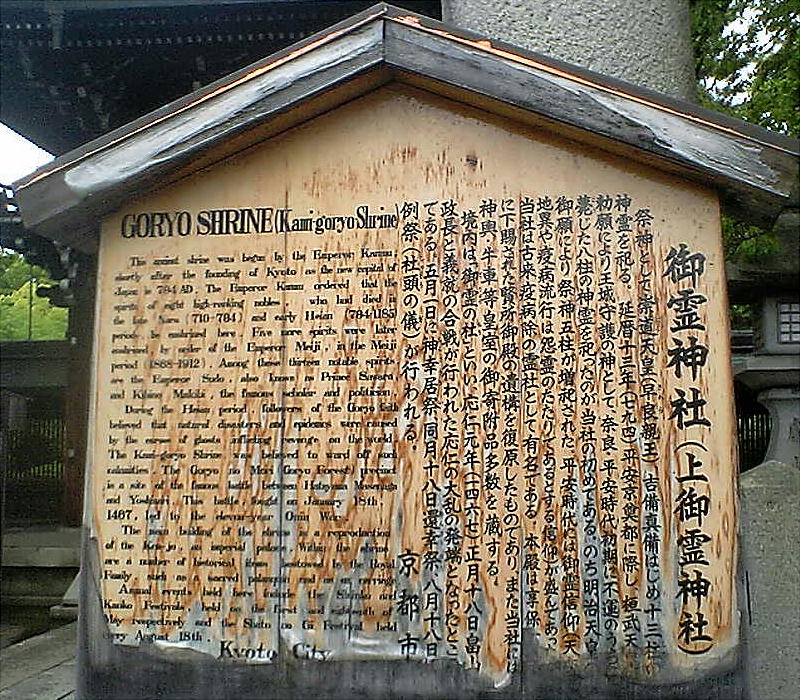 GORYO SHRINE (Kami-goryo Shrine)
This ancient shrine was begun by the Emperor Kanmu
shortly after the founding of Kyoto as the new capital of
Japan in 794 AD. The Emperor Kanmu ordered that the
spirits of eight high-ranking nobles, who had died in
the late Nara (710-784) and early Heian (784-1185)
periods, be enshrined here. Five more spirits were later
enshrined, by order of the Emperor Meiji, in the Meiji
period (1868-1912). Among these thirteen notable spirits
are the Emperor Sudo, also known as Prince Sawara,
and Kibino Makibi, the famous scholar and politician.
During the Heian period, followers of the Goryo faith
believed that natural disasters and epidemics were caused
by the curses of ghosts inflicting revenge on the world.
The Kami-goryo Shrine was believed to ward off such
calamities. The Goryo no Mori (Goryo Forest) precinct
is a site of the famous battle between Hatayama Masanaga
and Yoshinari. This battle, fought on January 18th,
1467, led to the eleven-year Onin War.
The main building of the shrine is a reproduction
of the imperial palace. Within the shrine
are a number of historical items bestowed by the Royal
Family, such as sacred palanquin and an ox carriage.
Annual events held here include the Shinko and
Kanko Festivals, held on the first and eighteenth of
May respectively, and the Shato no Gi Festival, held
every August 18th.
Kyoto City
御霊神社(上御霊神社)
祭神として崇道天皇(早良親王)、吉備真備はじめ十三柱の
神霊を祀る。延暦十三年(七九四)平安京奠都に際し、桓武天
勅願により王城守護の神として、奈良・平安時代初期に不運のうち
薨じた八柱の神霊を祀ったのが当社の初めである。のち明治天皇
御願により祭神五柱が増祀された。平安時代には御霊信仰(天
地異や疫病流行は怨霊のたたりであるとする信仰)が盛んであっ
当社は古来、疫病除の霊社として有名である。本殿は享保
に下賜された賢所御殿の遺構を復原したものであり、また当社には
神輿・牛車等、皇室の御寄附品多数を蔵する。
境内は「御霊の杜」といい、応仁元年(一四六七)正月十八日畠山
政長と義就の合戦が行われた応仁の大乱の発端となったとこ
である。五月一日に神幸祭、同月十八日還幸祭、八月十八日
例祭(社頭の儀)が行われる。
京都市